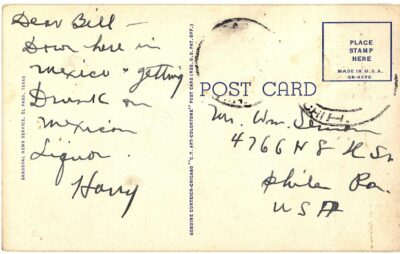 Dear Bill —
Down here in
Mexico — getting
Drunk on
Mexican
Liquor.
Harry
SANDOVAL NEWS SERVICE, EL PASO, TEXAS
GENUINE CURTEICH-CHICAGO "C.T. ART-COLORTONE" POST CARD (REG. U.S. PAT. OFF.)
POST CARD
PLACE
STAMP
HERE
MADE IN U.S.A.
Mr. Wm.
4766 N 8
Phila Pa.
USA